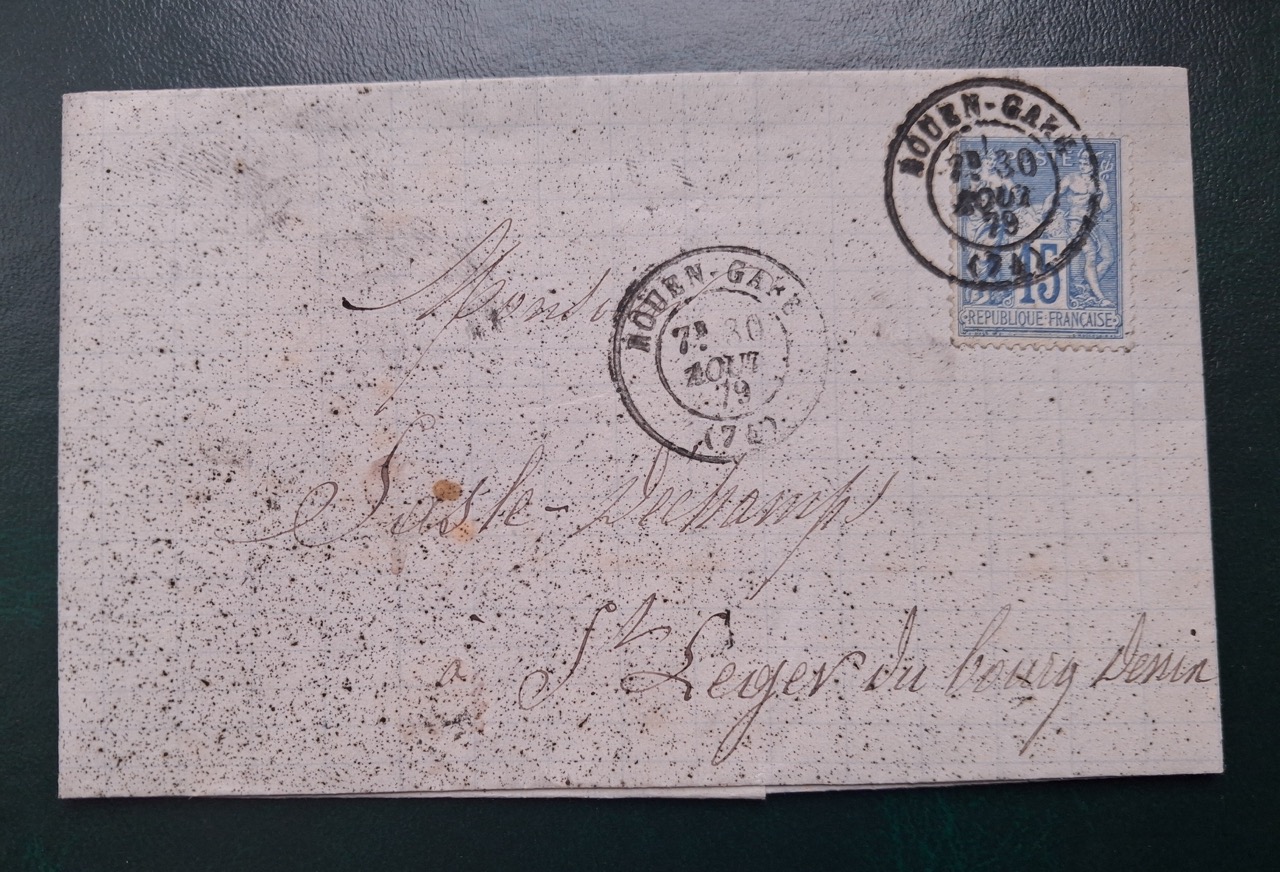 ROUEN-GARE
7E 30
AOUT
79
(74)
POSTE
15
REPUBLIQUE FRANÇAISE
ROUEN-GARE
7E 30
AOUT
79
(74)
Monsieur
Deschamps
à St Leger du bourg Denin